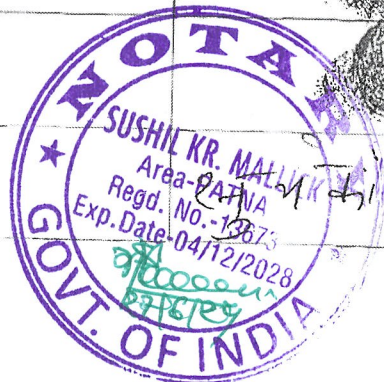 NOTARY
SUSHIL KR. MALLICK
Area-PATNA
Regd. No.-13673
Exp.Date-04/12/2028
GOVT. OF INDIA